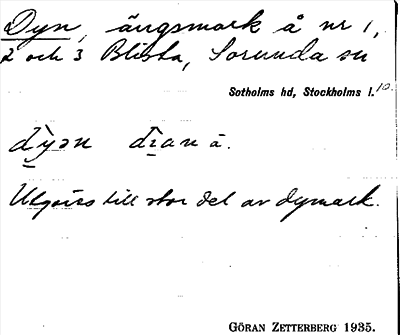 Dyn, ängsmark å nr 1,
2 och 3 Blista, Sorunda sn
Sotholms hd, Stockholms l. 10.
dỳən dìan ā.
Utgöres till stor del av dymark.
GÖRAN ZETTERBERG 1935.